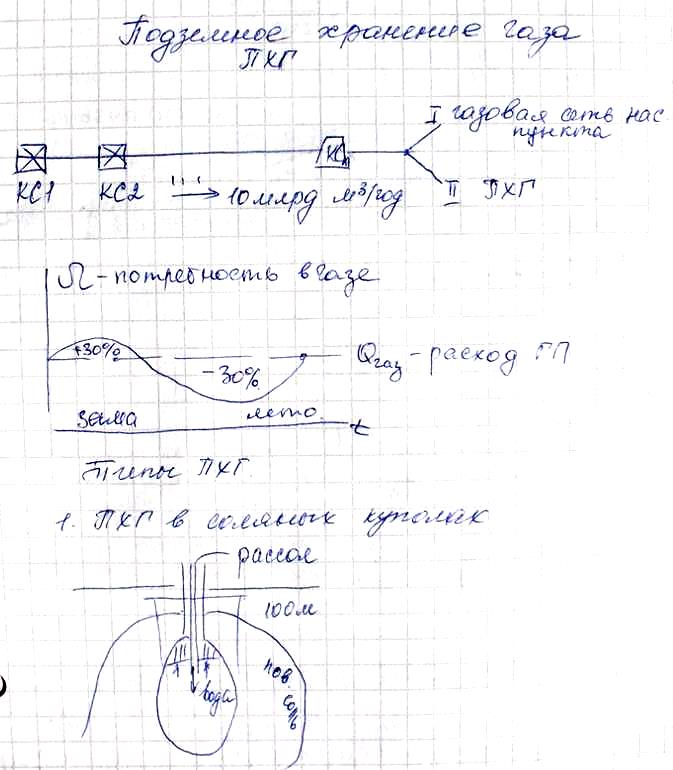 Подземное хранение газа
ПХГ
I газовая сеть нас.
пункта
КС1
КС2
КСn
10 млрд м³/год
II ПХГ
Ω - потребность в газе
+30%
-30%
Qгаз - расход ГП
зима
лето
t
Типы ПХГ.
1. ПХГ в соляных куполах
рассол
100м
вода
пов.
соль